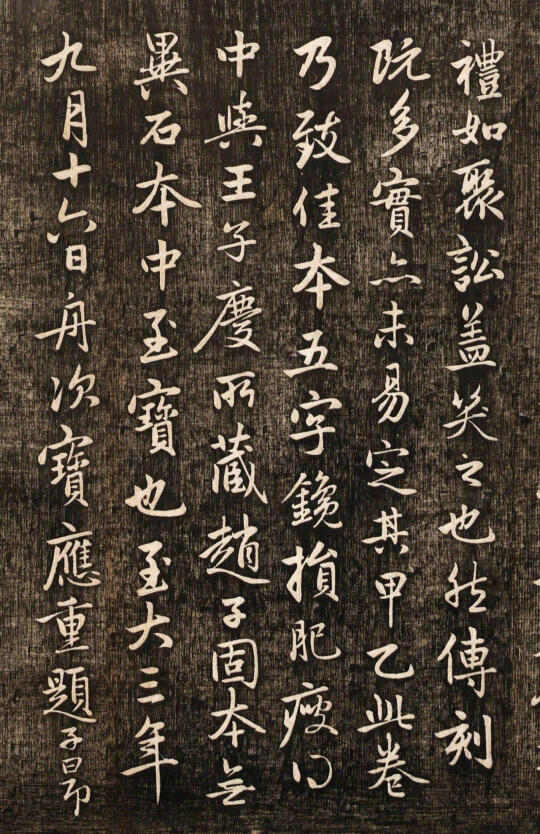 禮如聚訟蓋笑之也然傳刻
既多實亦未易定其甲乙此卷
乃致佳本五字鑱損肥瘦得
中與王子慶所藏趙子固本無
異石本中至寶也至大三年
九月十六日舟次寶應重題子昂